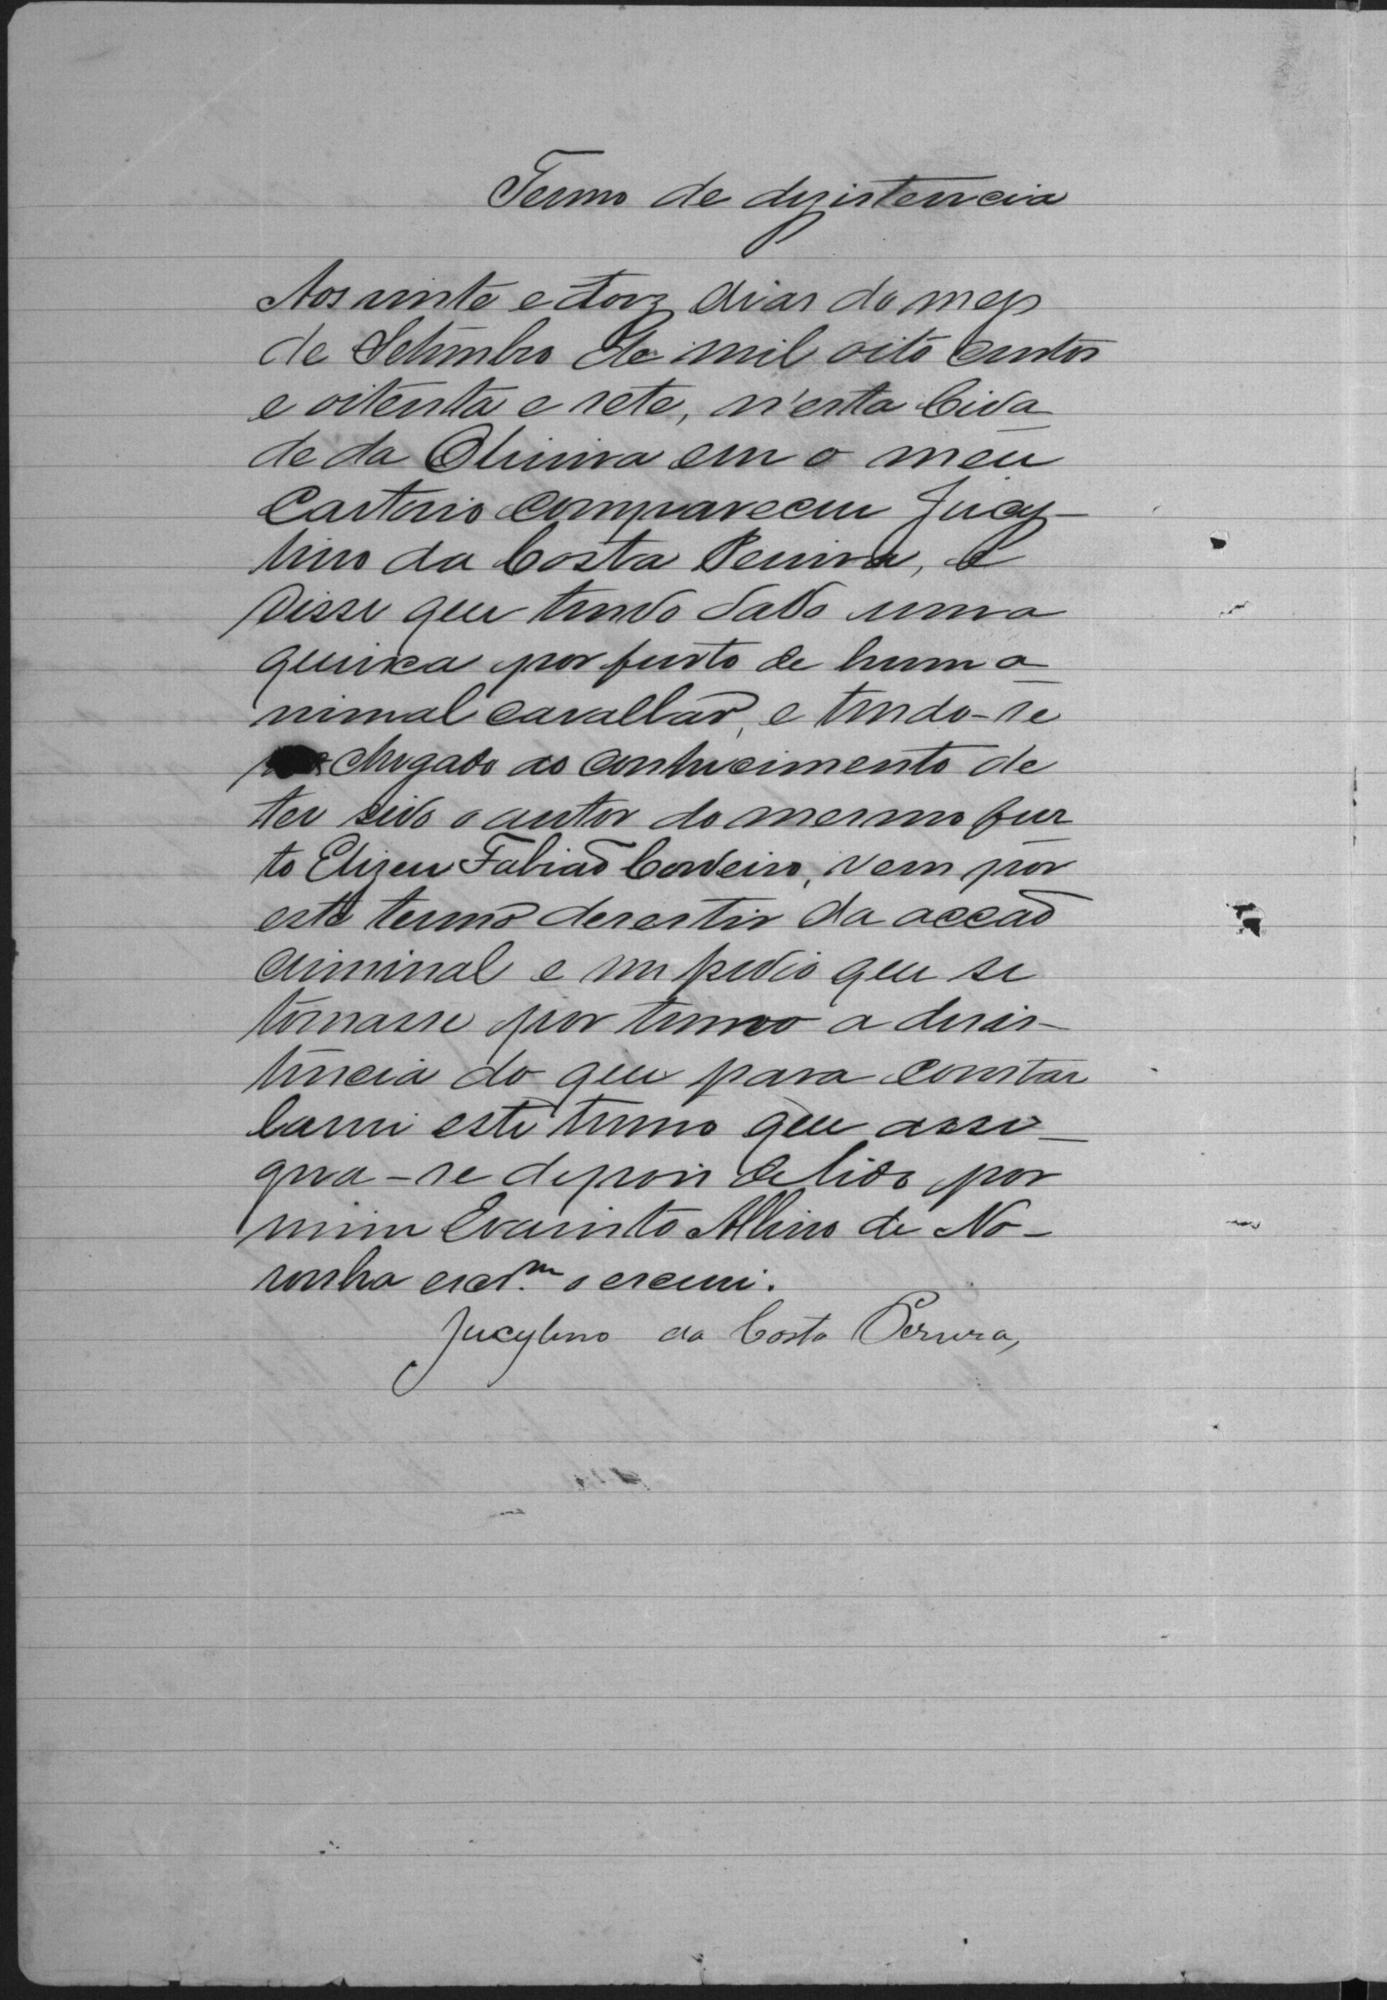 Termo de dezistencia
Aos vinte e dous dias do mes
de Setembro de mil oito centos
e oitenta e sete, n'esta Cida
de da Oliveira em o meu
Cartorio compareceu Jucy-
lino da Costa Pereira, e
disse que tendo dado uma
queixa por furto de hum a
nimal cavallar, e tendo-se
chegado ao conhecimento de
ter sido o autor do mesmo fur
to Elizeu Fabião Cordeiro, vem por
este termo desestir da acção
criminal e me pedio que se
tomasse por termo a desis-
tencia do que para constar
lavrei este termo que assi-
gna-se depois de lido por
mim Evaristo Albino de No-
ronha escr.m o escrevi.
Jucylino da Costa Pereira,